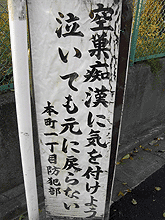 空巣痴漢に気を付けよう
泣いても元に戻らない
本町一丁目防犯部